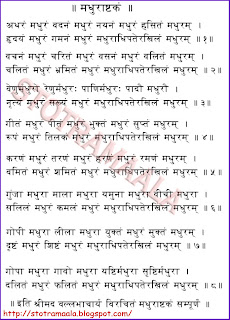 ॥ मधुराष्टकं ॥
अधरं मधुरं वदनं मधुरं नयनं मधुरं हसितं मधुरम् ।
हृदयं मधुरं गमनं मधुरं मधुराधिपतेरखिलं मधुरम् ॥१॥
वचनं मधुरं चरितं मधुरं वसनं मधुरं वलितं मधुरम् ।
चलितं मधुरं भ्रमितं मधुरं मधुराधिपतेरखिलं मधुरम् ॥२॥
वेणुर्मधुरो रेणुर्मधुरः पाणिर्मधुरः पादौ मधुरौ ।
नृत्यं मधुरं सख्यं मधुरं मधुराधिपतेरखिलं मधुरम् ॥३॥
गीतं मधुरं पीतं मधुरं भुक्तं मधुरं सुप्तं मधुरम् ।
रूपं मधुरं तिलकं मधुरं मधुराधिपतेरखिलं मधुरम् ॥४॥
करणं मधुरं तरणं मधुरं हरणं मधुरं रमणं मधुरम् ।
वमितं मधुरं शमितं मधुरं मधुराधिपतेरखिलं मधुरम् ॥५॥
गुंजा मधुरा माला मधुरा यमुना मधुरा वीची मधुरा ।
सलिलं मधुरं कमलं मधुरं मधुराधिपतेरखिलं मधुरम् ॥६॥
गोपी मधुरा लीला मधुरा युक्तं मधुरं मुक्तं मधुरम् ।
दृष्टं मधुरं शिष्टं मधुरं मधुराधिपतेरखिलं मधुरम् ॥७॥
गोपा मधुरा गावो मधुरा यष्टिर्मधुरा सृष्टिर्मधुरा ।
दलितं मधुरं फलितं मधुरं मधुराधिपतेरखिलं मधुरम् ॥८॥
॥ इति श्रीमद वल्लभाचार्य विरचितं मधुराष्टकं सम्पूर्णं ॥
http://stotramaala.blogspot.com/
STOTRAMAALA